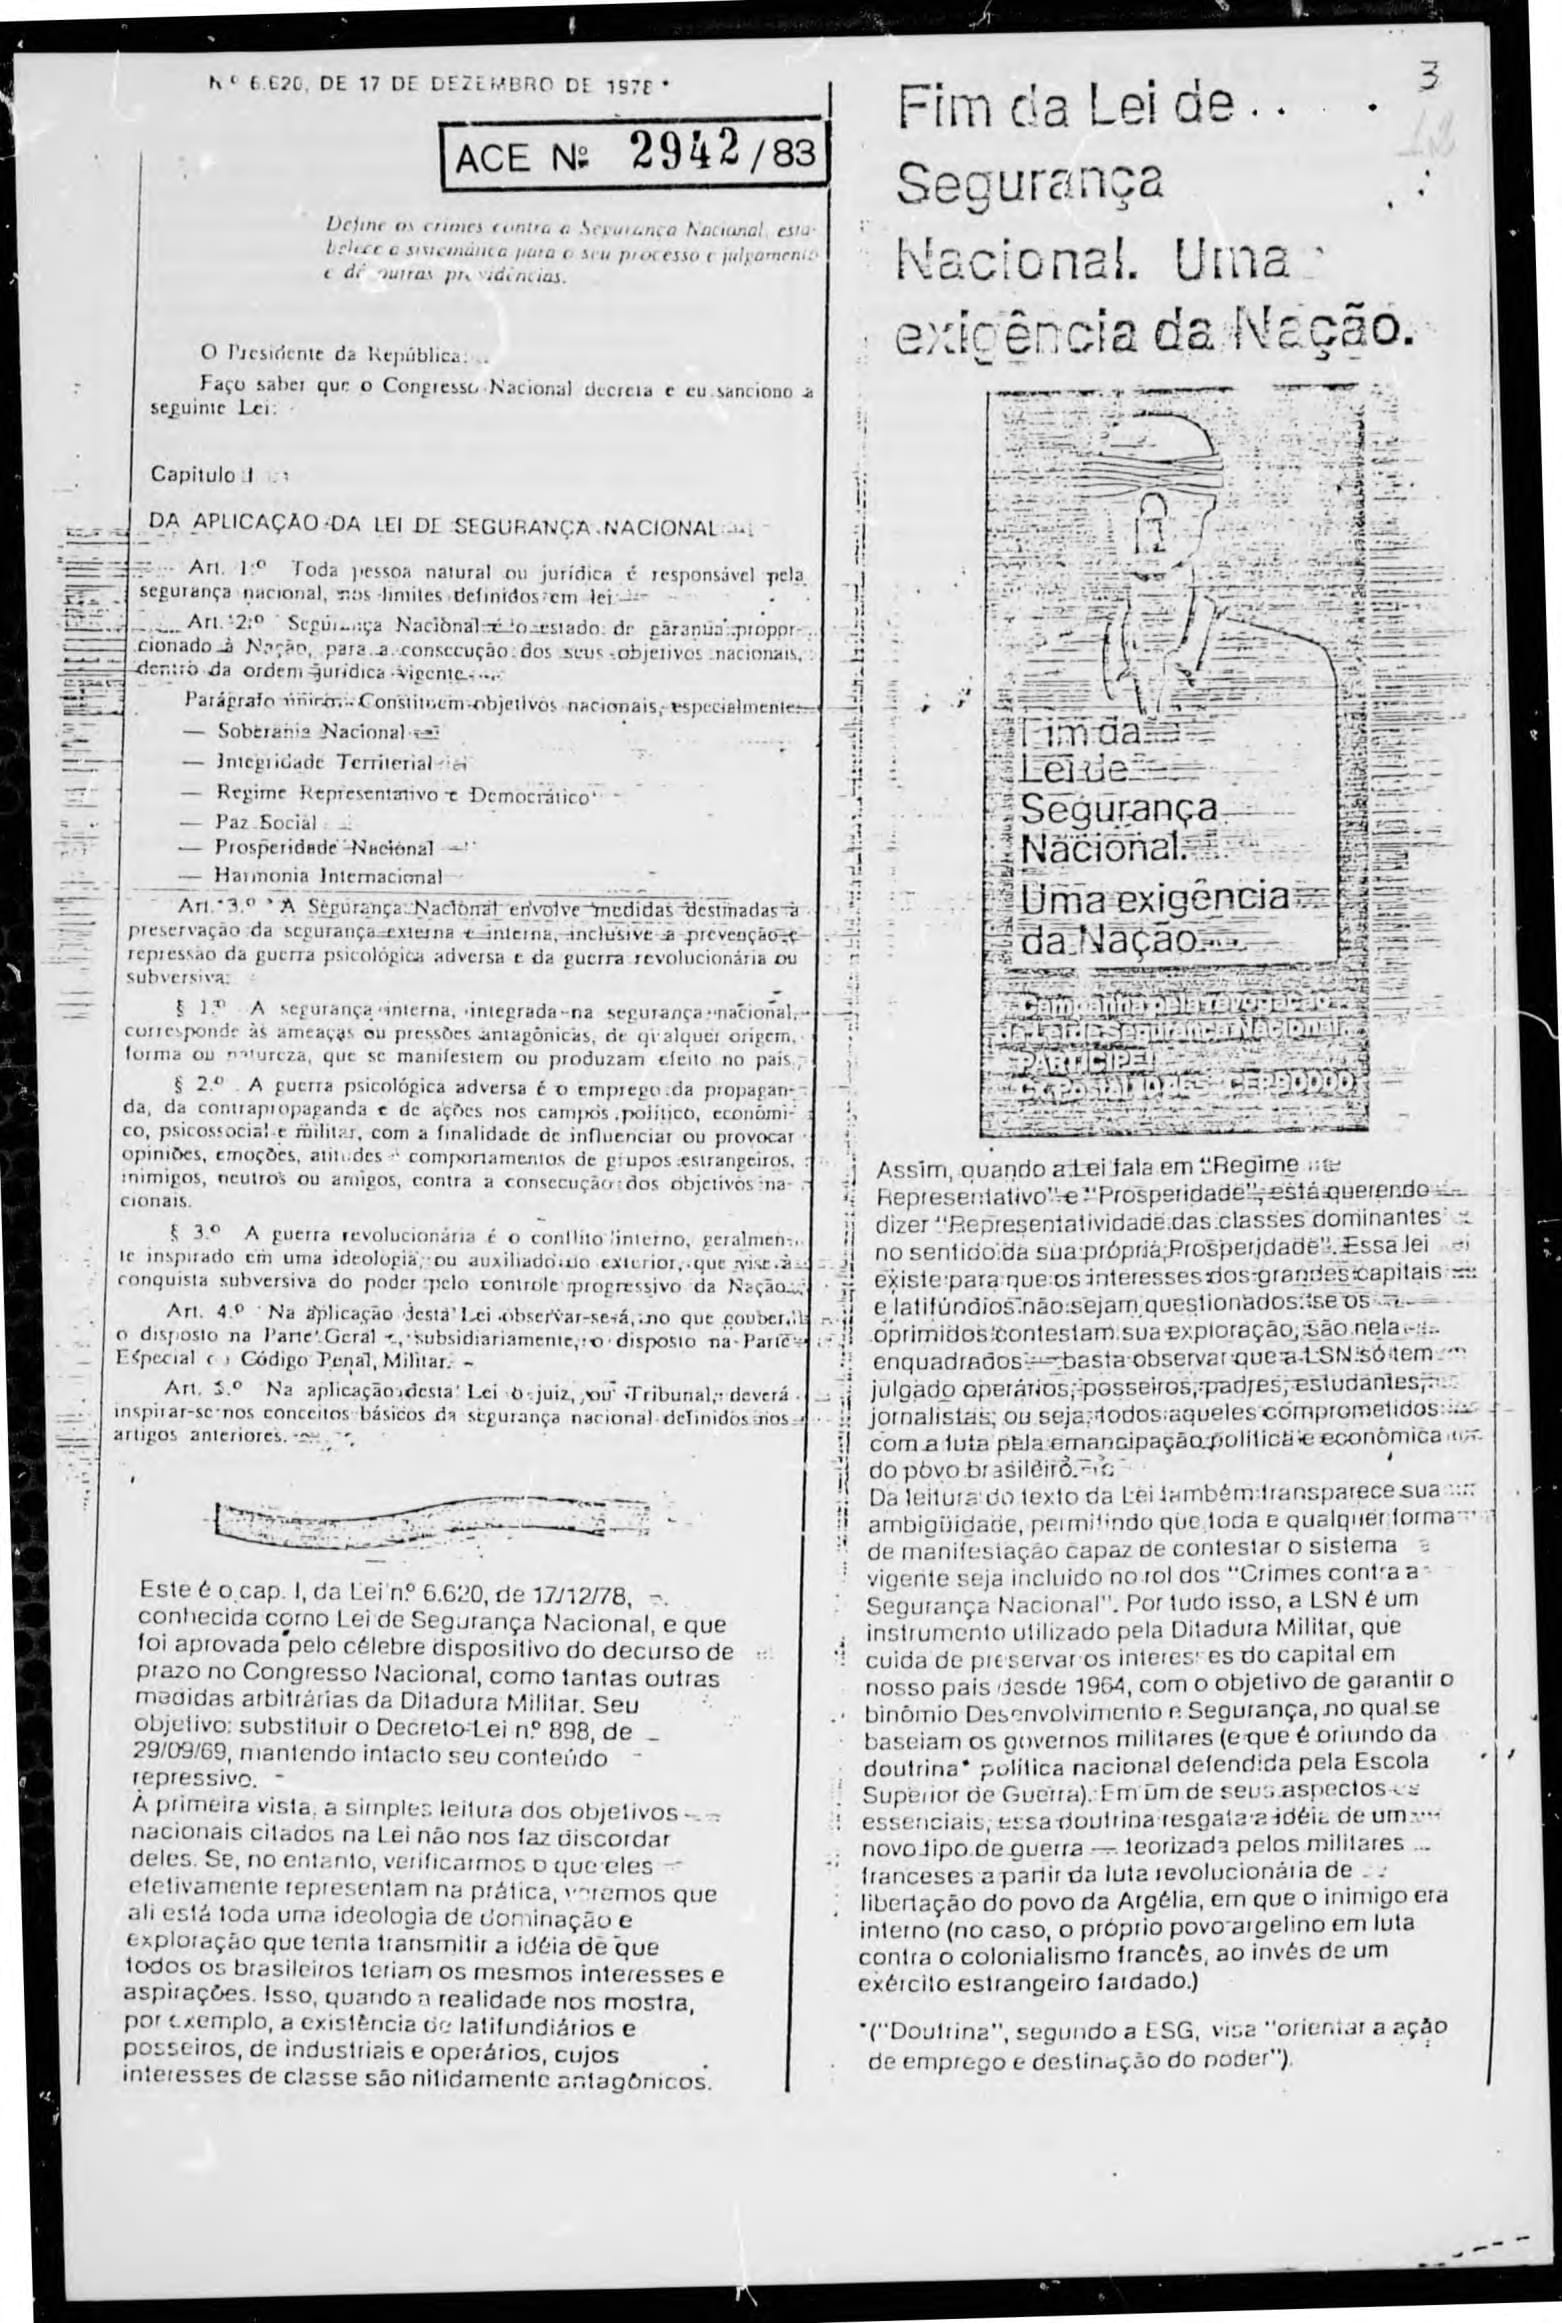 Nº 6.620, DE 17 DE DEZEMBRO DE 1978 *
ACE Nº 2942/83
Define os crimes contra a Segurança Nacional, esta-
belece a sistemática para o seu processo e julgamento
e dá outras providências.
O Presidente da República:
Faço saber que o Congresso Nacional decreta e eu sanciono a
seguinte Lei:
Capítulo I
DA APLICAÇÃO DA LEI DE SEGURANÇA NACIONAL
Art. 1.º Toda pessoa natural ou jurídica é responsável pela
segurança nacional, nos limites definidos em lei
Art. 2.º Segurança Nacional é o estado de garantia propor-
cionado à Nação, para a consecução dos seus objetivos nacionais,
dentro da ordem jurídica vigente
Parágrafo único. Constituem objetivos nacionais, especialmente:
— Soberania Nacional
— Integridade Territorial
— Regime Representativo e Democrático
— Paz Social
— Prosperidade Nacional
— Harmonia Internacional
Art. 3.º A Segurança Nacional envolve medidas destinadas à
preservação da segurança externa e interna, inclusive a prevenção e
repressão da guerra psicológica adversa e da guerra revolucionária ou
subversiva.
§ 1.º A segurança interna, integrada na segurança nacional,
corresponde às ameaças ou pressões antagônicas, de qualquer origem,
forma ou natureza, que se manifestem ou produzam efeito no país.
§ 2.º A guerra psicológica adversa é o emprego da propagan-
da, da contrapropaganda e de ações nos campos político, econômi-
co, psicossocial e militar, com a finalidade de influenciar ou provocar
opiniões, emoções, atitudes e comportamentos de grupos estrangeiros,
inimigos, neutros ou amigos, contra a consecução dos objetivos na-
cionais.
§ 3.º A guerra revolucionária é o conflito interno, geralmen-
te inspirado em uma ideologia, ou auxiliado do exterior, que visa à
conquista subversiva do poder pelo controle progressivo da Nação
Art. 4.º Na aplicação desta Lei observar-se-á, no que couber,
o disposto na Parte Geral e, subsidiariamente, o disposto na Parte
Especial do Código Penal Militar.
Art. 5.º Na aplicação desta Lei o juiz, ou Tribunal, deverá
inspirar-se nos conceitos básicos da segurança nacional definidos nos
artigos anteriores.
Este é o cap. I, da Lei n.º 6.620, de 17/12/78,
conhecida como Lei de Segurança Nacional, e que
foi aprovada pelo célebre dispositivo do decurso de
prazo no Congresso Nacional, como tantas outras
medidas arbitrárias da Ditadura Militar. Seu
objetivo: substituir o Decreto-Lei n.º 898, de
29/09/69, mantendo intacto seu conteúdo
repressivo.
À primeira vista, a simples leitura dos objetivos
nacionais citados na Lei não nos faz discordar
deles. Se, no entanto, verificarmos o que eles
efetivamente representam na prática, veremos que
ali está toda uma ideologia de dominação e
exploração que tenta transmitir a idéia de que
todos os brasileiros teriam os mesmos interesses e
aspirações. Isso, quando a realidade nos mostra,
por exemplo, a existência de latifundiários e
posseiros, de industriais e operários, cujos
interesses de classe são nitidamente antagônicos.
3
12
Fim da Lei de
Segurança
Nacional. Uma
exigência da Nação.
Fim da
Lei de
Segurança
Nacional.
Uma exigência
da Nação
Campanha pela revogação
da Lei de Segurança Nacional
PARTICIPE!
Assim, quando a Lei fala em "Regime
Representativo" e "Prosperidade", está querendo
dizer "Representatividade das classes dominantes
no sentido da sua própria Prosperidade". Essa lei
existe para que os interesses dos grandes capitais
e latifúndios não sejam questionados: se os
oprimidos contestam sua exploração, são nela
enquadrados — basta observar que a LSN só tem
julgado operários, posseiros, padres, estudantes,
jornalistas, ou seja, todos aqueles comprometidos
com a luta pela emancipação política e econômica
do povo brasileiro.
Da leitura do texto da Lei também transparece sua
ambigüidade, permitindo que toda e qualquer forma
de manifestação capaz de contestar o sistema
vigente seja incluido no rol dos "Crimes contra a
Segurança Nacional". Por tudo isso, a LSN é um
instrumento utilizado pela Ditadura Militar, que
cuida de preservar os interesses do capital em
nosso país desde 1964, com o objetivo de garantir o
binômio Desenvolvimento e Segurança, no qual se
baseiam os governos militares (e que é oriundo da
doutrina* política nacional defendida pela Escola
Superior de Guerra). Em um de seus aspectos
essenciais, essa doutrina resgata a idéia de um
novo tipo de guerra — teorizada pelos militares
franceses a partir da luta revolucionária de
libertação do povo da Argélia, em que o inimigo era
interno (no caso, o próprio povo argelino em luta
contra o colonialismo francês, ao invés de um
exército estrangeiro fardado.)
*("Doutrina", segundo a ESG, visa "orientar a ação
de emprego e destinação do poder").